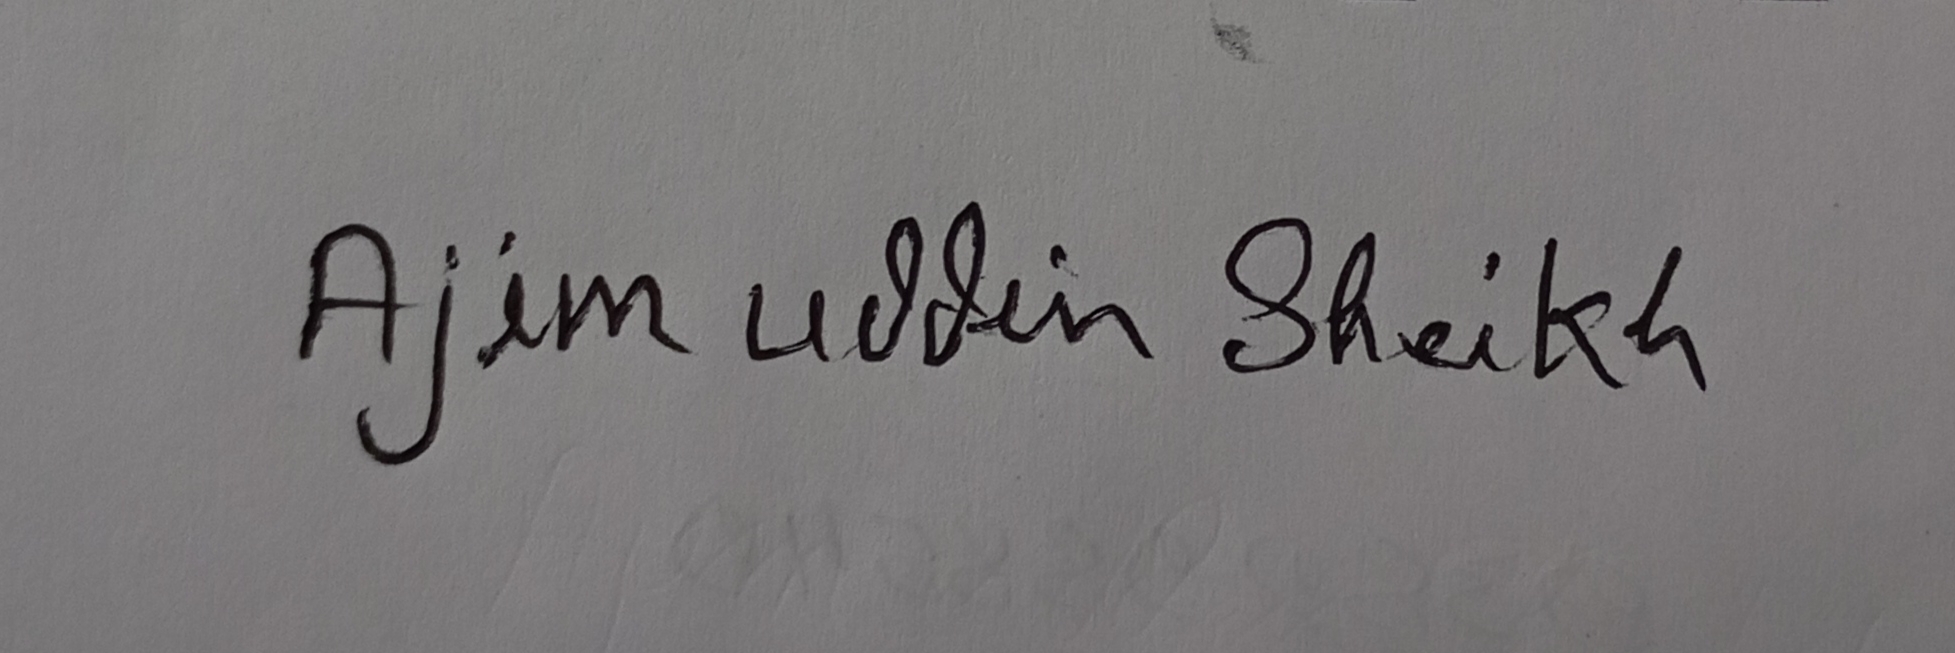 Ajim uddin Sheikh